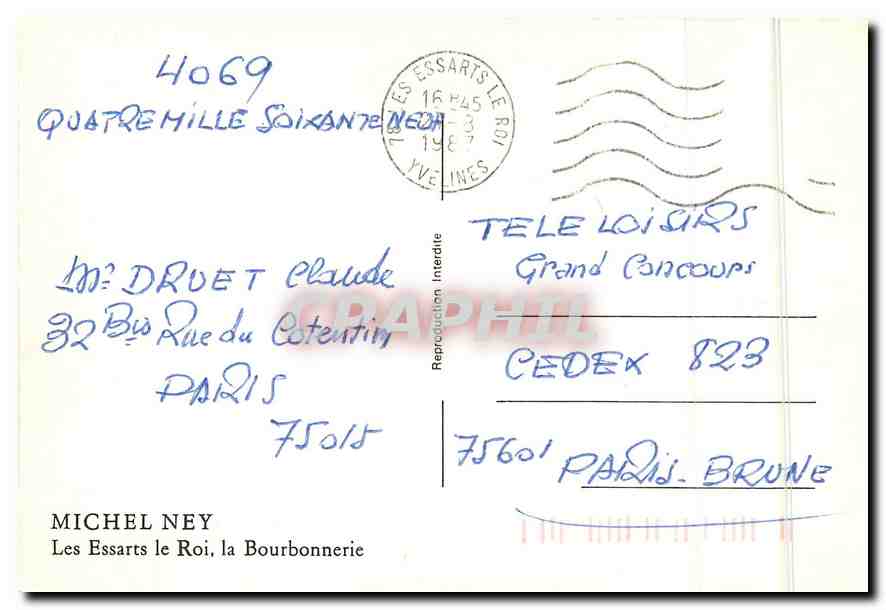 4069
QUATREMILLE SOIXANTENEUF
78 LES ESSARTS LE ROI
16 H45
-8
1987
YVELINES
Mr DRUET Claude
32 Bis Rue du Cotentin
PARIS
75015
Reproduction Interdite
CPAPHIL
TELE LOISIRS
Grand Concours
CEDEX 823
75601 PARIS-BRUNE
MICHEL NEY
Les Essarts le Roi, la Bourbonnerie